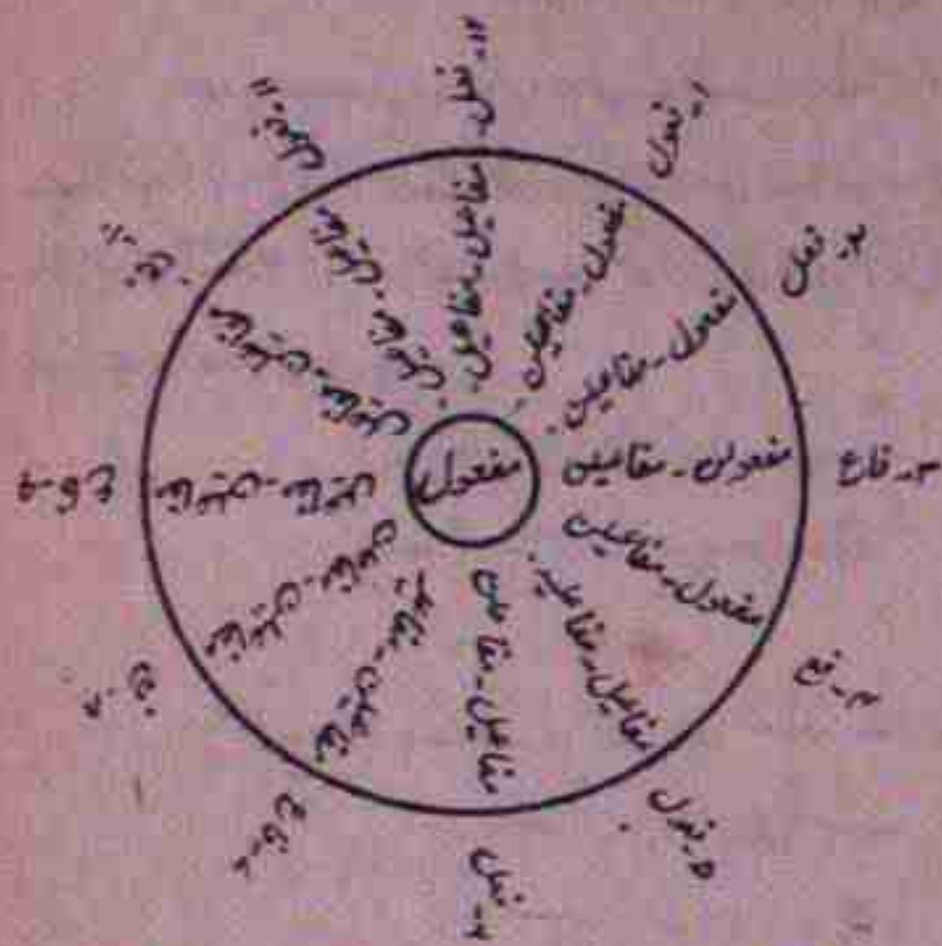 مفعول
۱۔ فعول
مفعول۔ مفاعیلن
۲۔ فعل
مفعول۔ مفاعیلن
۳۔ فاع
مفعولن۔ مفاعیلن
۴۔ فع
مفعول۔ مفاعیلن
۵۔ فعول
مفاعیل۔
۶۔ فعل
مفاعیل۔ مفاعلن
۷۔ فاع
مفاعیلن۔
۸۔ فع
مفاعیلن۔ مفاعلن
۹۔ فاع
مفاعیلن۔
۱۰۔ فع
مفاعیلن۔
۱۱۔ فعول
مفاعیل۔
۱۲۔ فعل
مفاعیل۔ مفاعیل